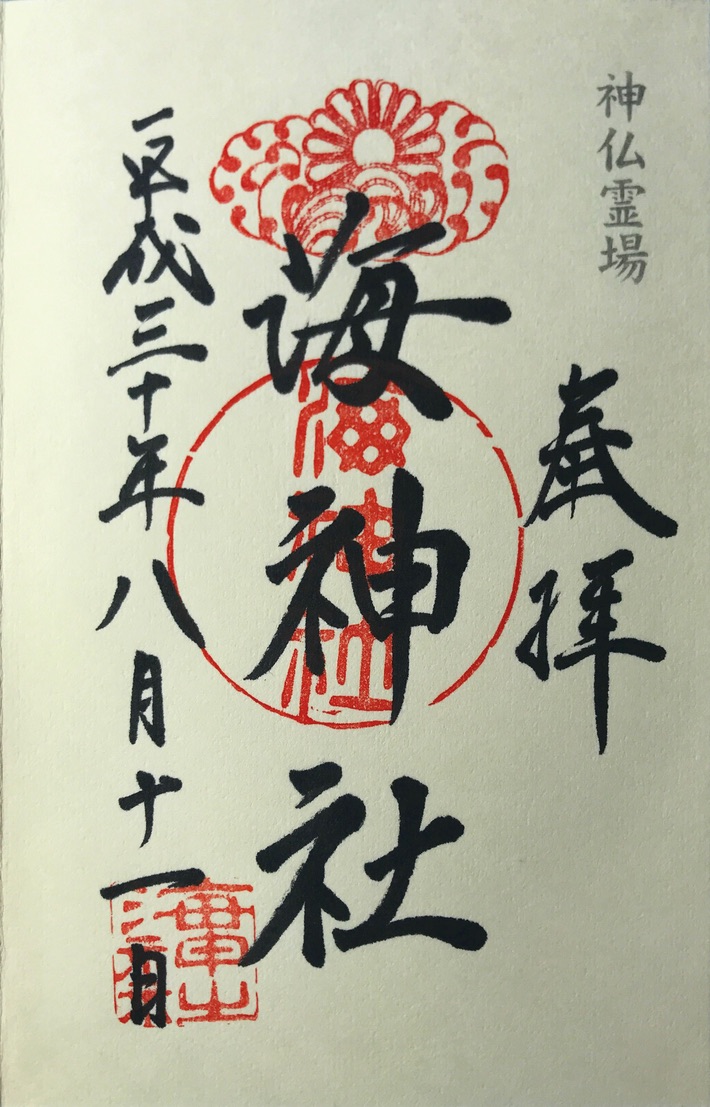 神仏霊場
奉拝
海神社
海神社
平成三十年八月十一日